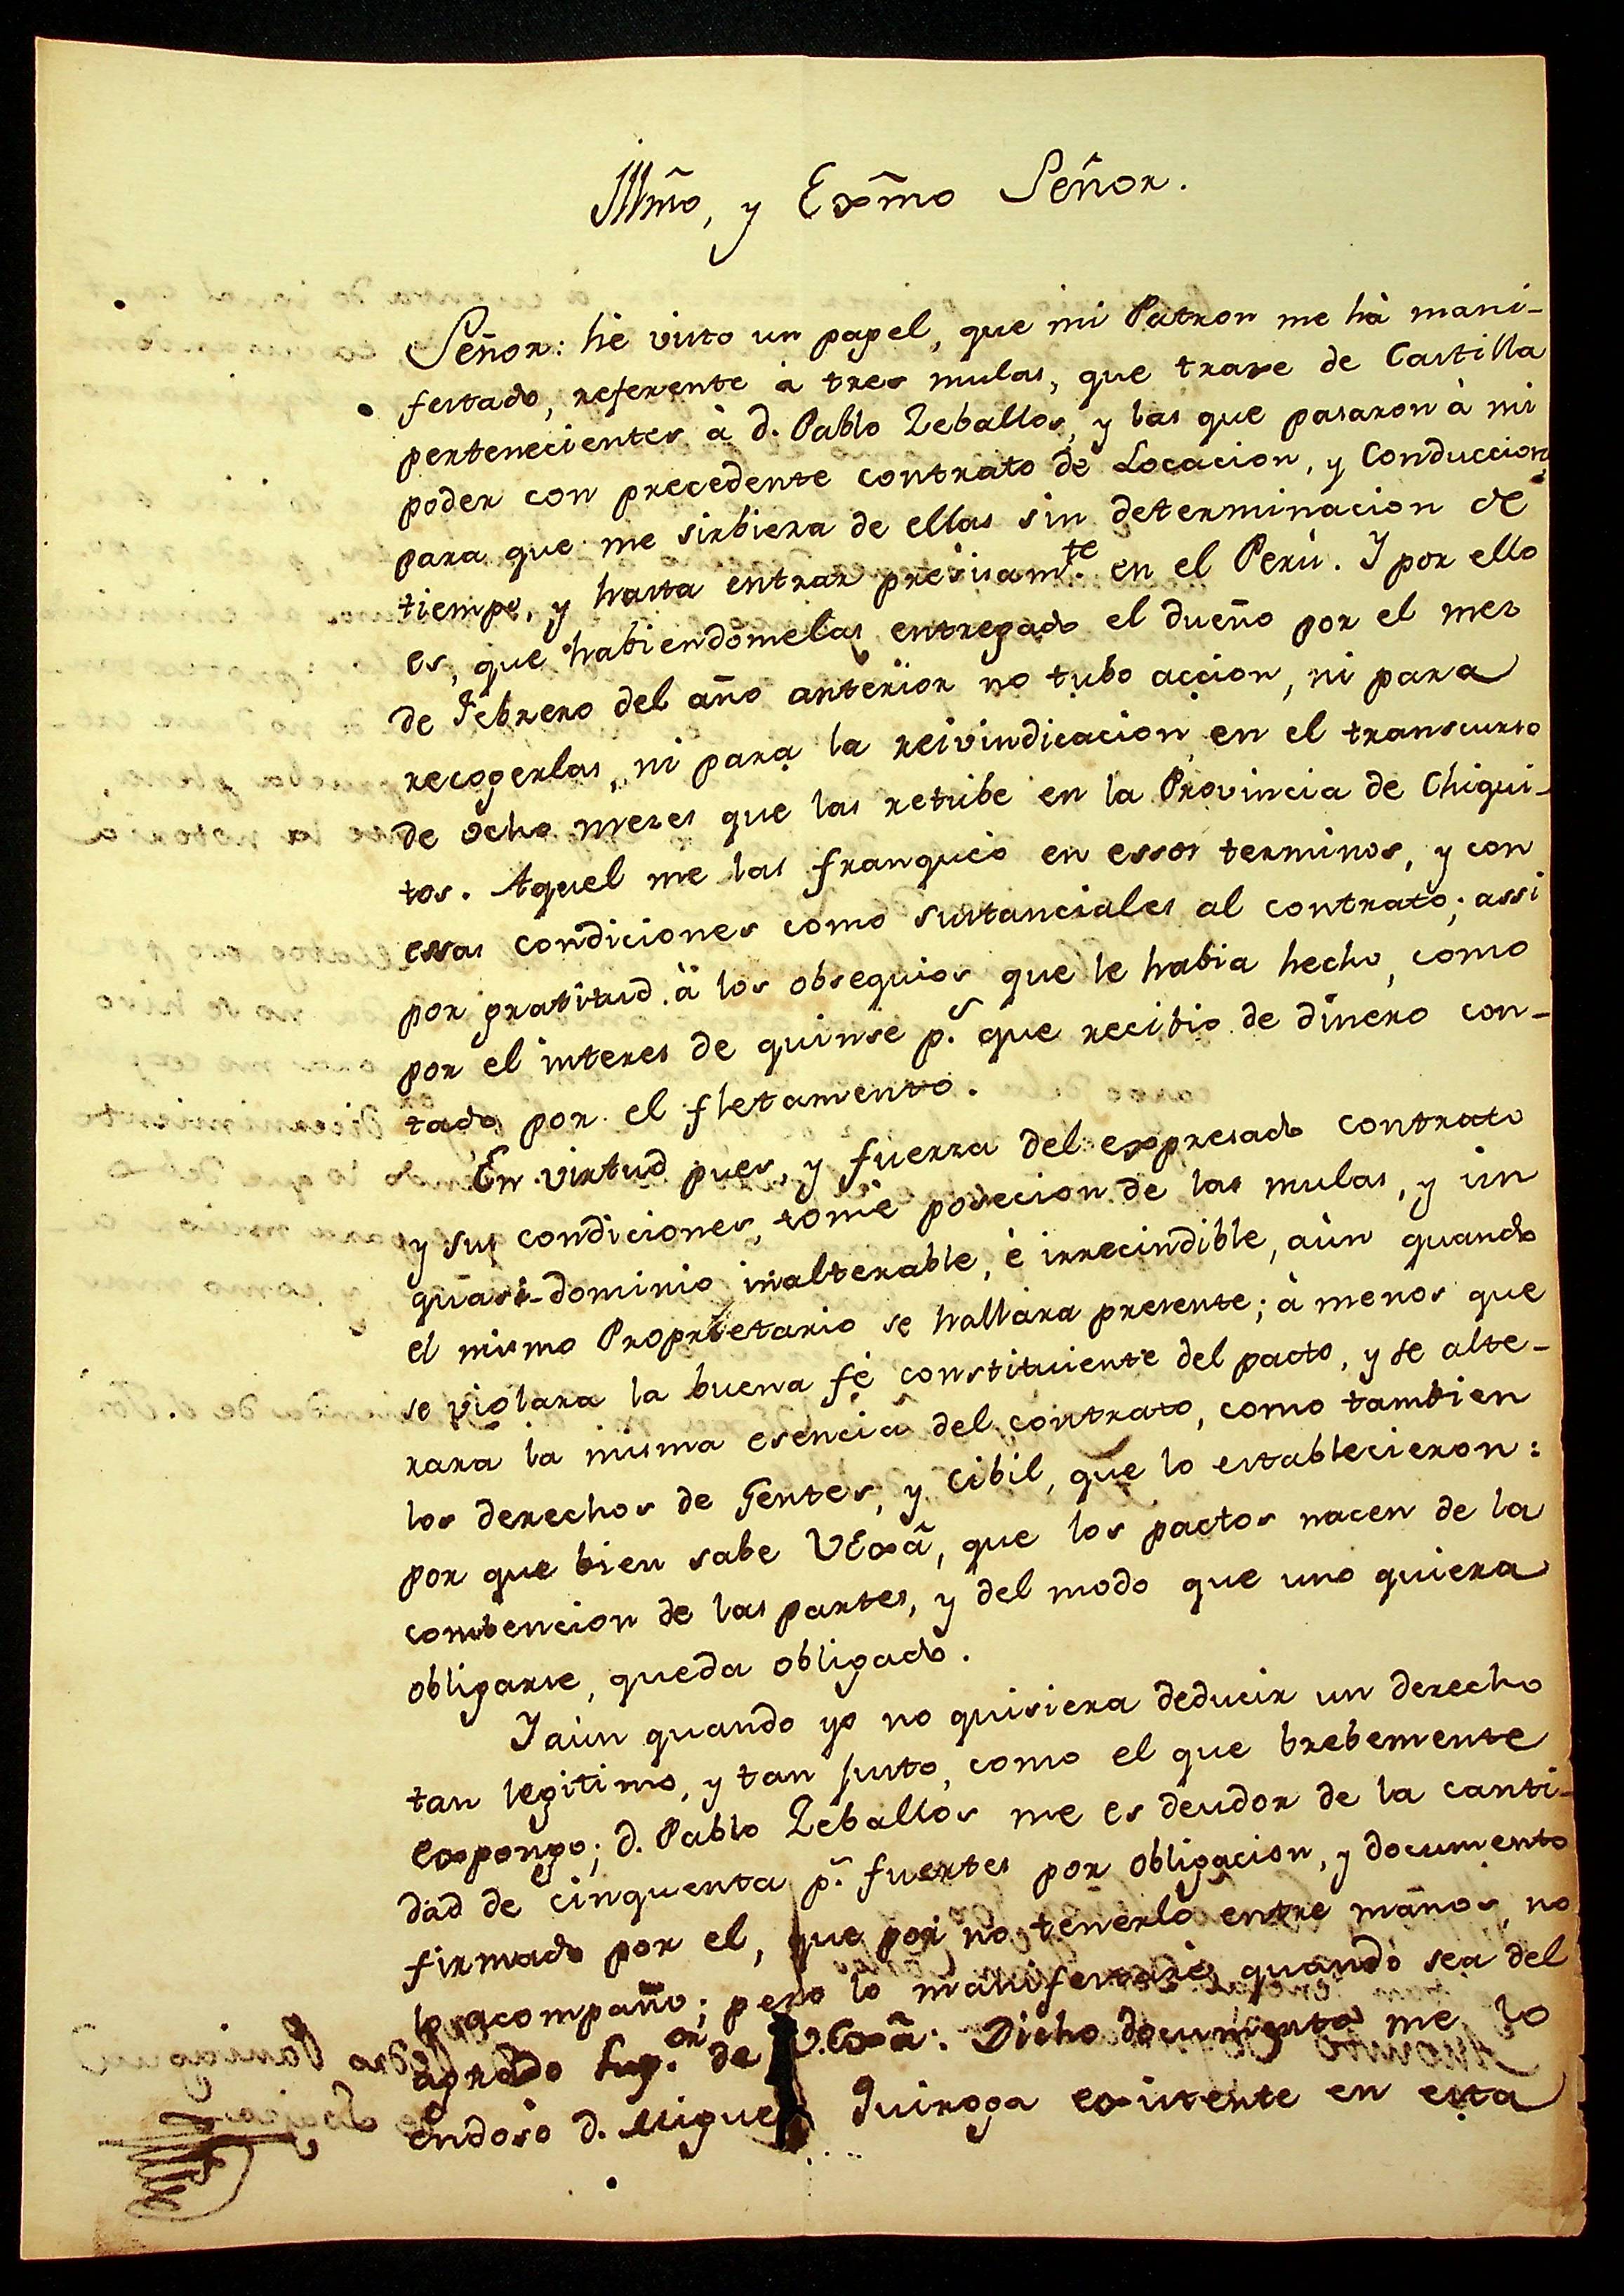 Illmõ, y Exm̃o Señor.
Señor: hè visto un papel, que mi Patron me hà mani-
festado, referente à tres mulas, que traxe de Castilla
pertenecientes à d. Pablo Zeballos, y las que pasaron à mi
poder con precedente contrato de Locacion, y Conduccion,
para que me sirbiera de ellas sin determinacion de
tiempo, y hasta entrar presisam.te en el Perù. I por ello
es, que habiendomelas entregado el dueño por el mes
de Febrero del año anterior no tubo accion, ni para
recogerlas, ni para la reivindicacion en el transcurso
de ocho meses que las retube en la Provincia de Chiqui-
tos. Aquel me las franqueò en essos terminos, y con
essas condiciones como sustanciales al contrato; assi
por gratitud à los obsequios que le habia hecho, como
por el interes de quinse p.s que recibio de dinero con-
tado por el fletamento.
En virtud pues, y fuerza del expresado contrato
y sus condiciones, tomè posecion de las mulas, y un
quasi-dominio inalterable, è irrecindible, aùn quando
el mismo Proprietario se hallàra presente; à menos que
se violara la buena fè constituiente del pacto, y se alte-
rara la misma esencia del contrato, como tambien
los derechos de Gentes, y Cibil, que lo establecieron:
por que bien sabe VExâ, que los pactos nacen de la
combencion de las partes, y del modo que uno quiera
obligarse, queda obligado.
I aùn quando yo no quisiera deducir un derecho
tan legitimo, y tan justo, como el que brebemente
expongo; d. Pablo Zeballos me es deudor de la canti-
dad de cinquenta p.s fuertes por obligacion, y documento
firmado por el, que por no tenerlo entre manos, no
lo acompaño; pero lo manifestarè, quando sea del
agrado Sup.or de V.Exâ. Dicho documento me lo
endosò d. Miguel Quiroga existente en esta